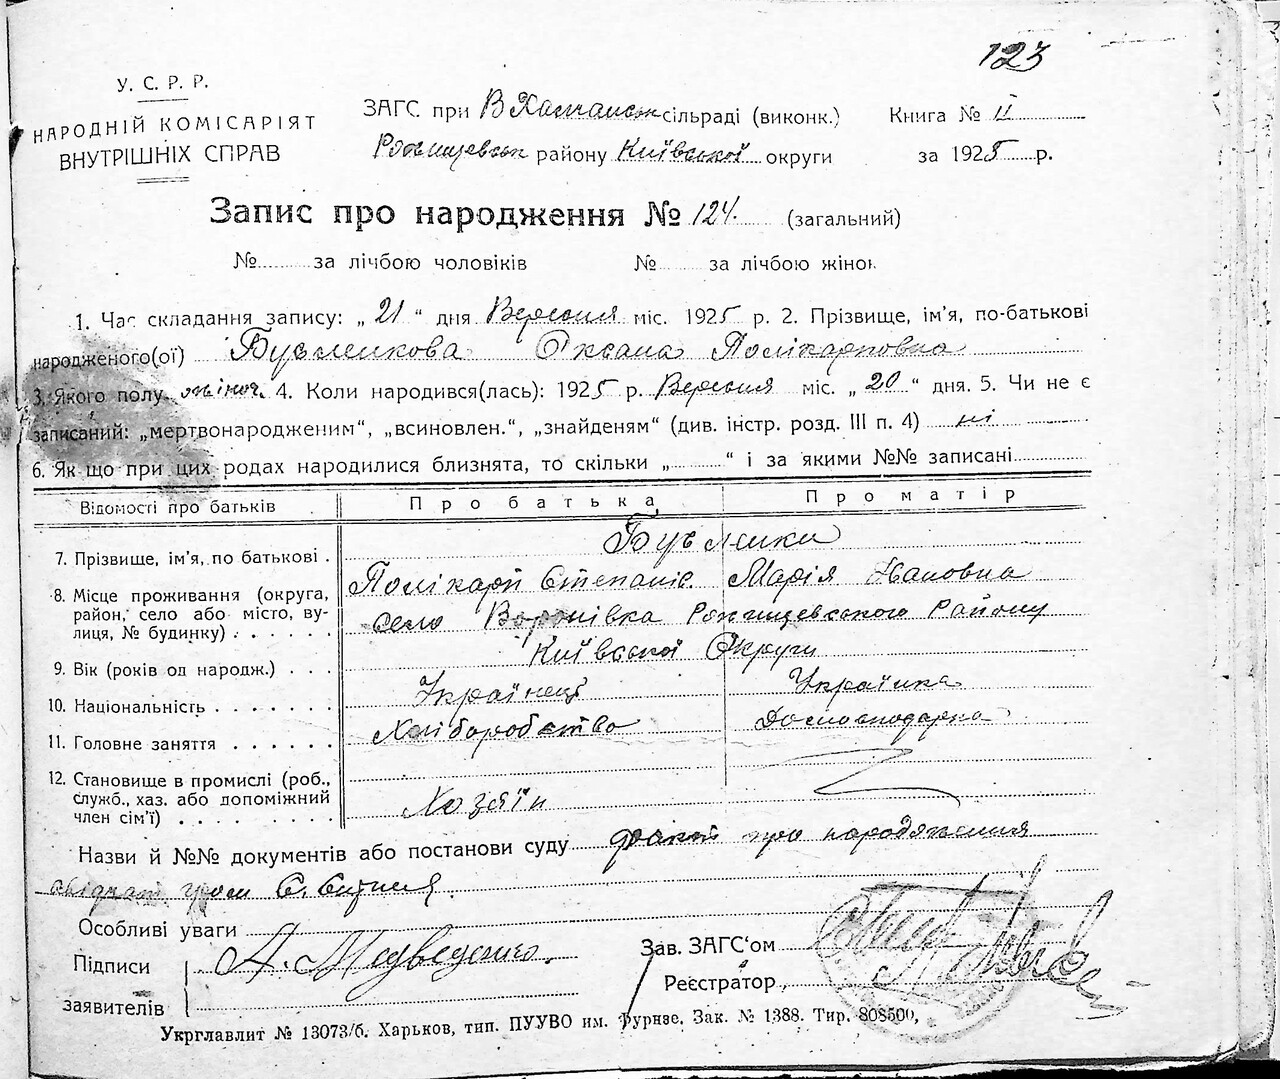 123
У. С. Р. Р.
НАРОДНІЙ КОМІСАРІЯТ
ВНУТРІШНІХ СПРАВ
ЗАГС при сільраді (виконк.)
Рожищевськ району Київської округи
Книга № II
за 1925 р.
Запис про народження № 124. (загальний)
№ за лічбою чоловіків № за лічбою жінок
1. Час складання запису: „ 21 “ дня Вересня міс. 1925 р. 2. Прізвище, ім'я, по-батькові
народженого(ої) Оксана Полікарповна
3. Якого полу жіноч. 4. Коли народився(лась): 1925 р. Вересня міс. „ 20 “ дня. 5. Чи не є
записаний: „мертвонародженим“, „всиновлен.“, „знайденям“ (див. інстр. розд. III п. 4) ні
6. Як що при цих родах народилися близнята, то скільки „ “ і за якими №№ записані
Відомості про батьків Про батька Про матір
7. Прізвище, ім'я, по батькові .
Полікарп Степанів. Марія Івановна
8. Місце проживання (округа,
район, село або місто, ву-
лиця, № будинку) . . . . . .
село Воронівка Рожищевського Району
Київської Округи
9. Вік (років од народж.) . . .
10. Національність . . . . . . .
Українець Українка
11. Головне заняття . . . . . .
Хліборобство Домогосподарка
12. Становище в промислі (роб.,
служб., хаз. або допоміжний
член сім'ї) . . . . . . . . . .
Хозяїн
Назви й №№ документів або постанови суду про народження
гром Є.
Особливі уваги
Підписи
заявителів
А. Медведенко.
Зав. ЗАГС'ом
Реєстратор
Укрглавлит № 13073/б. Харьков, тип. ПУУВО им. Фрунзе. Зак. № 1388. Тир. 808500,